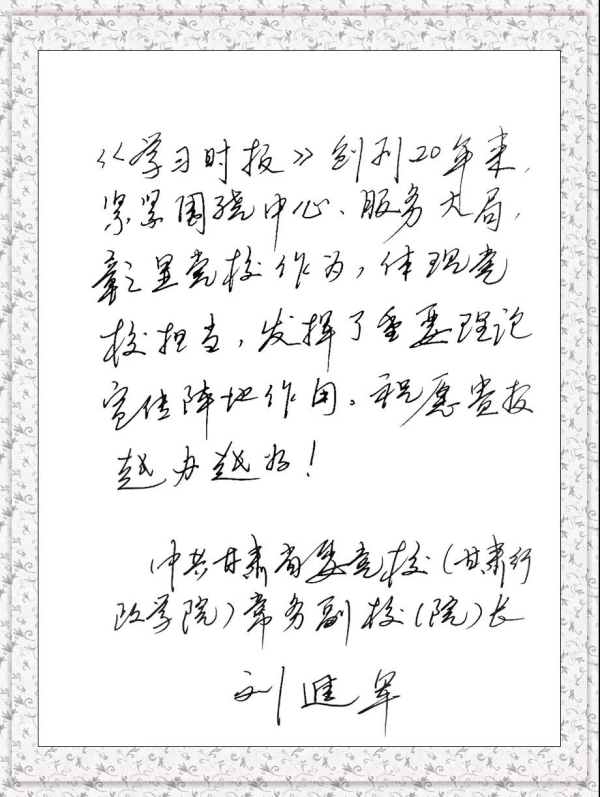 《学习时报》创刊20年来,
紧紧围绕中心、服务大局,
彰显党校作为,体现党
校担当,发挥了重要理论
宣传阵地作用。祝愿贵报
越办越好!
中共甘肃省委党校(甘肃行
政学院)常务副校(院)长
刘進军